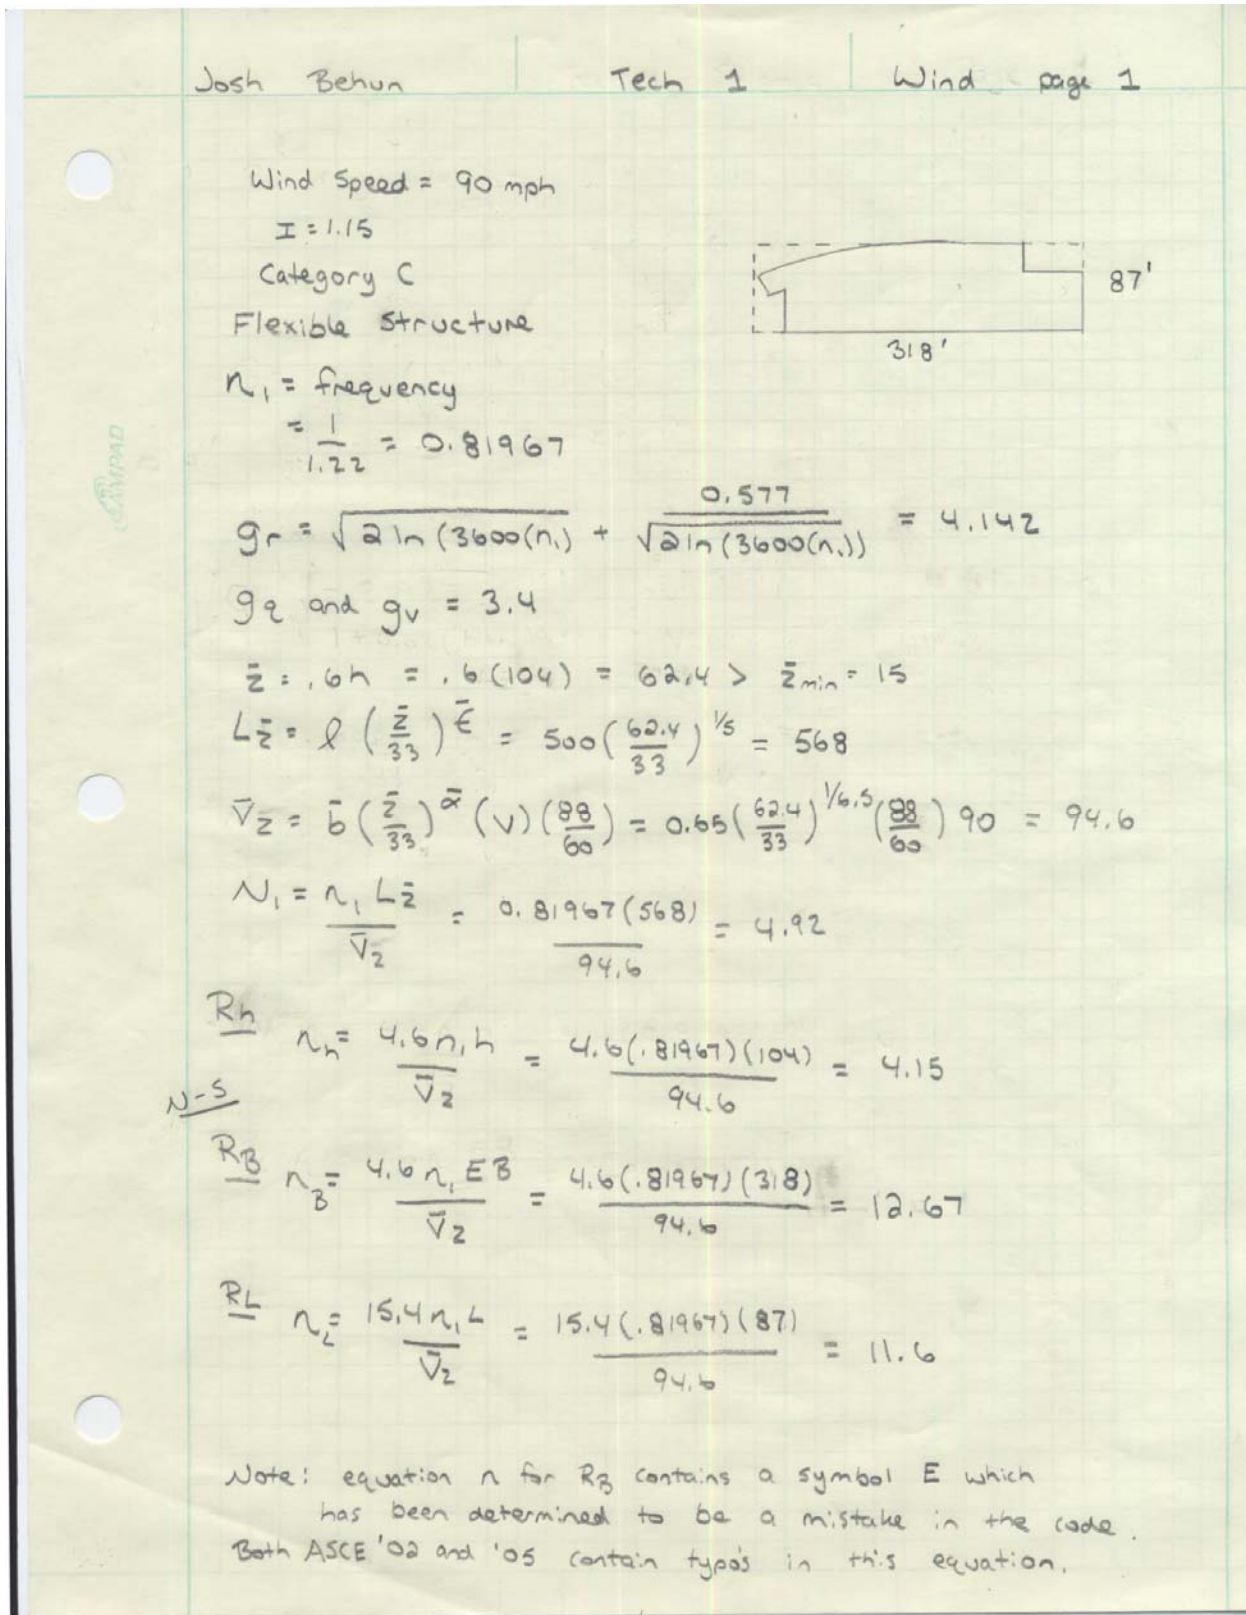 Josh Behun Tech 1 Wind page 1
Wind Speed = 90 mph
I = 1.15
Category C
87'
Flexible Structure
318'
n₁ = frequency
= 1/1.22 = 0.81967
AMPAD
gr = √2 ln (3600(n₁) + 0.577/√2 ln (3600(n₁)) = 4.142
gq and gv = 3.4
z̄ = .6h = .6(104) = 62.4 > z̄min = 15
Lz̄ = l (z̄/33)^ϵ̄ = 500 (62.4/33)^1/5 = 568
V̄z̄ = b̄ (z̄/33)^ᾱ (V) (88/60) = 0.65 (62.4/33)^1/6.5 (88/60) 90 = 94.6
N₁ = n₁ Lz̄/V̄z = 0.81967(568)/94.6 = 4.92
Rh nh = 4.6 n₁ h/V̄z = 4.6(.81967)(104)/94.6 = 4.15
N-S
RB nB = 4.6 n₁ EB/V̄z = 4.6(.81967)(318)/94.6 = 12.67
RL nL = 15.4 n₁ L/V̄z = 15.4(.81967)(87)/94.6 = 11.6
Note: equation n for RB contains a symbol E which
has been determined to be a mistake in the code.
Both ASCE '02 and '05 contain typo's in this equation.